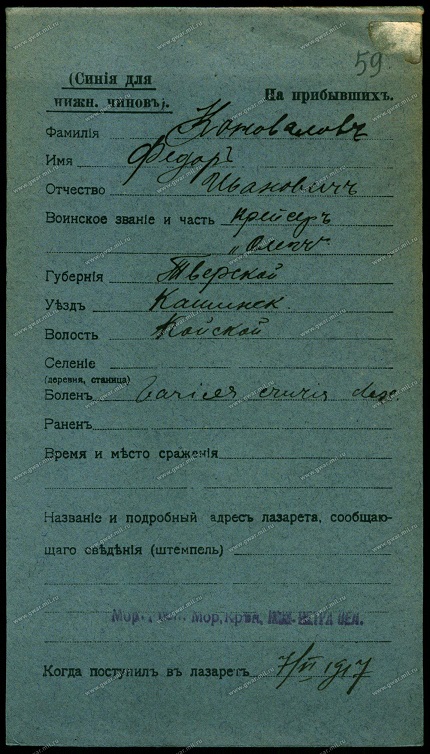 59
(Синія для
нижн. чиновъ).
На прибывшихъ.
Фамилія Коноваловъ
Имя Федоръ
Отчество Ивановичъ
Воинское званіе и часть крейсеръ
„Олегъ“
Губернія Тверской
Уѣздъ Кашинск.
Волость Койской
Селеніе
(деревня, станица)
Боленъ Varices cruris
Раненъ
Время и мѣсто сраженія
Названіе и подробный адресъ лазарета, сообщаю-
щаго свѣдѣнія (штемпель)
Мор. Мор. Крѣп. ИМП. ПЕТРА ВЕЛ.
Когда поступилъ въ лазаретъ 7/II 1917
www.gwar.mil.ru